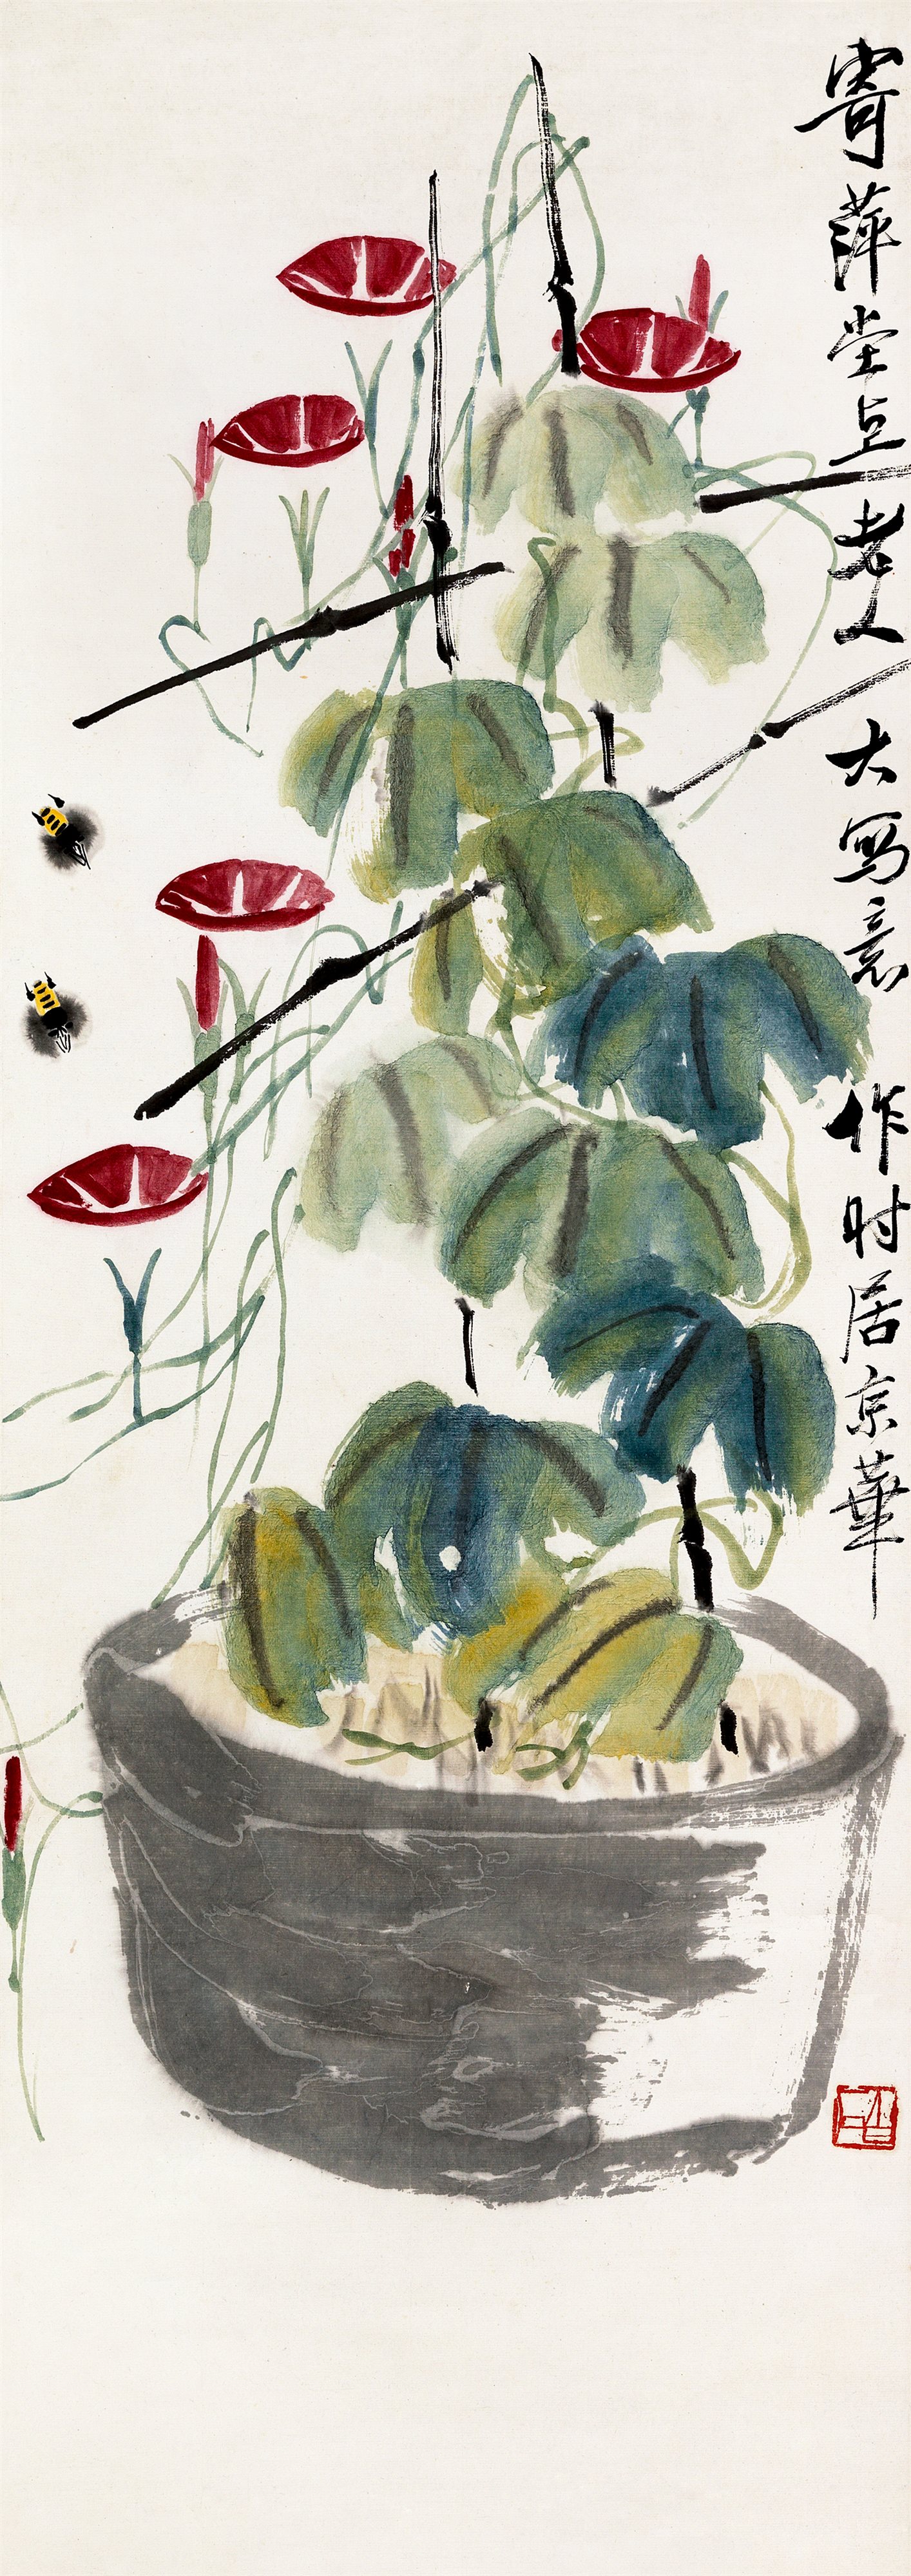 寄萍堂上老人大写意作时居京華